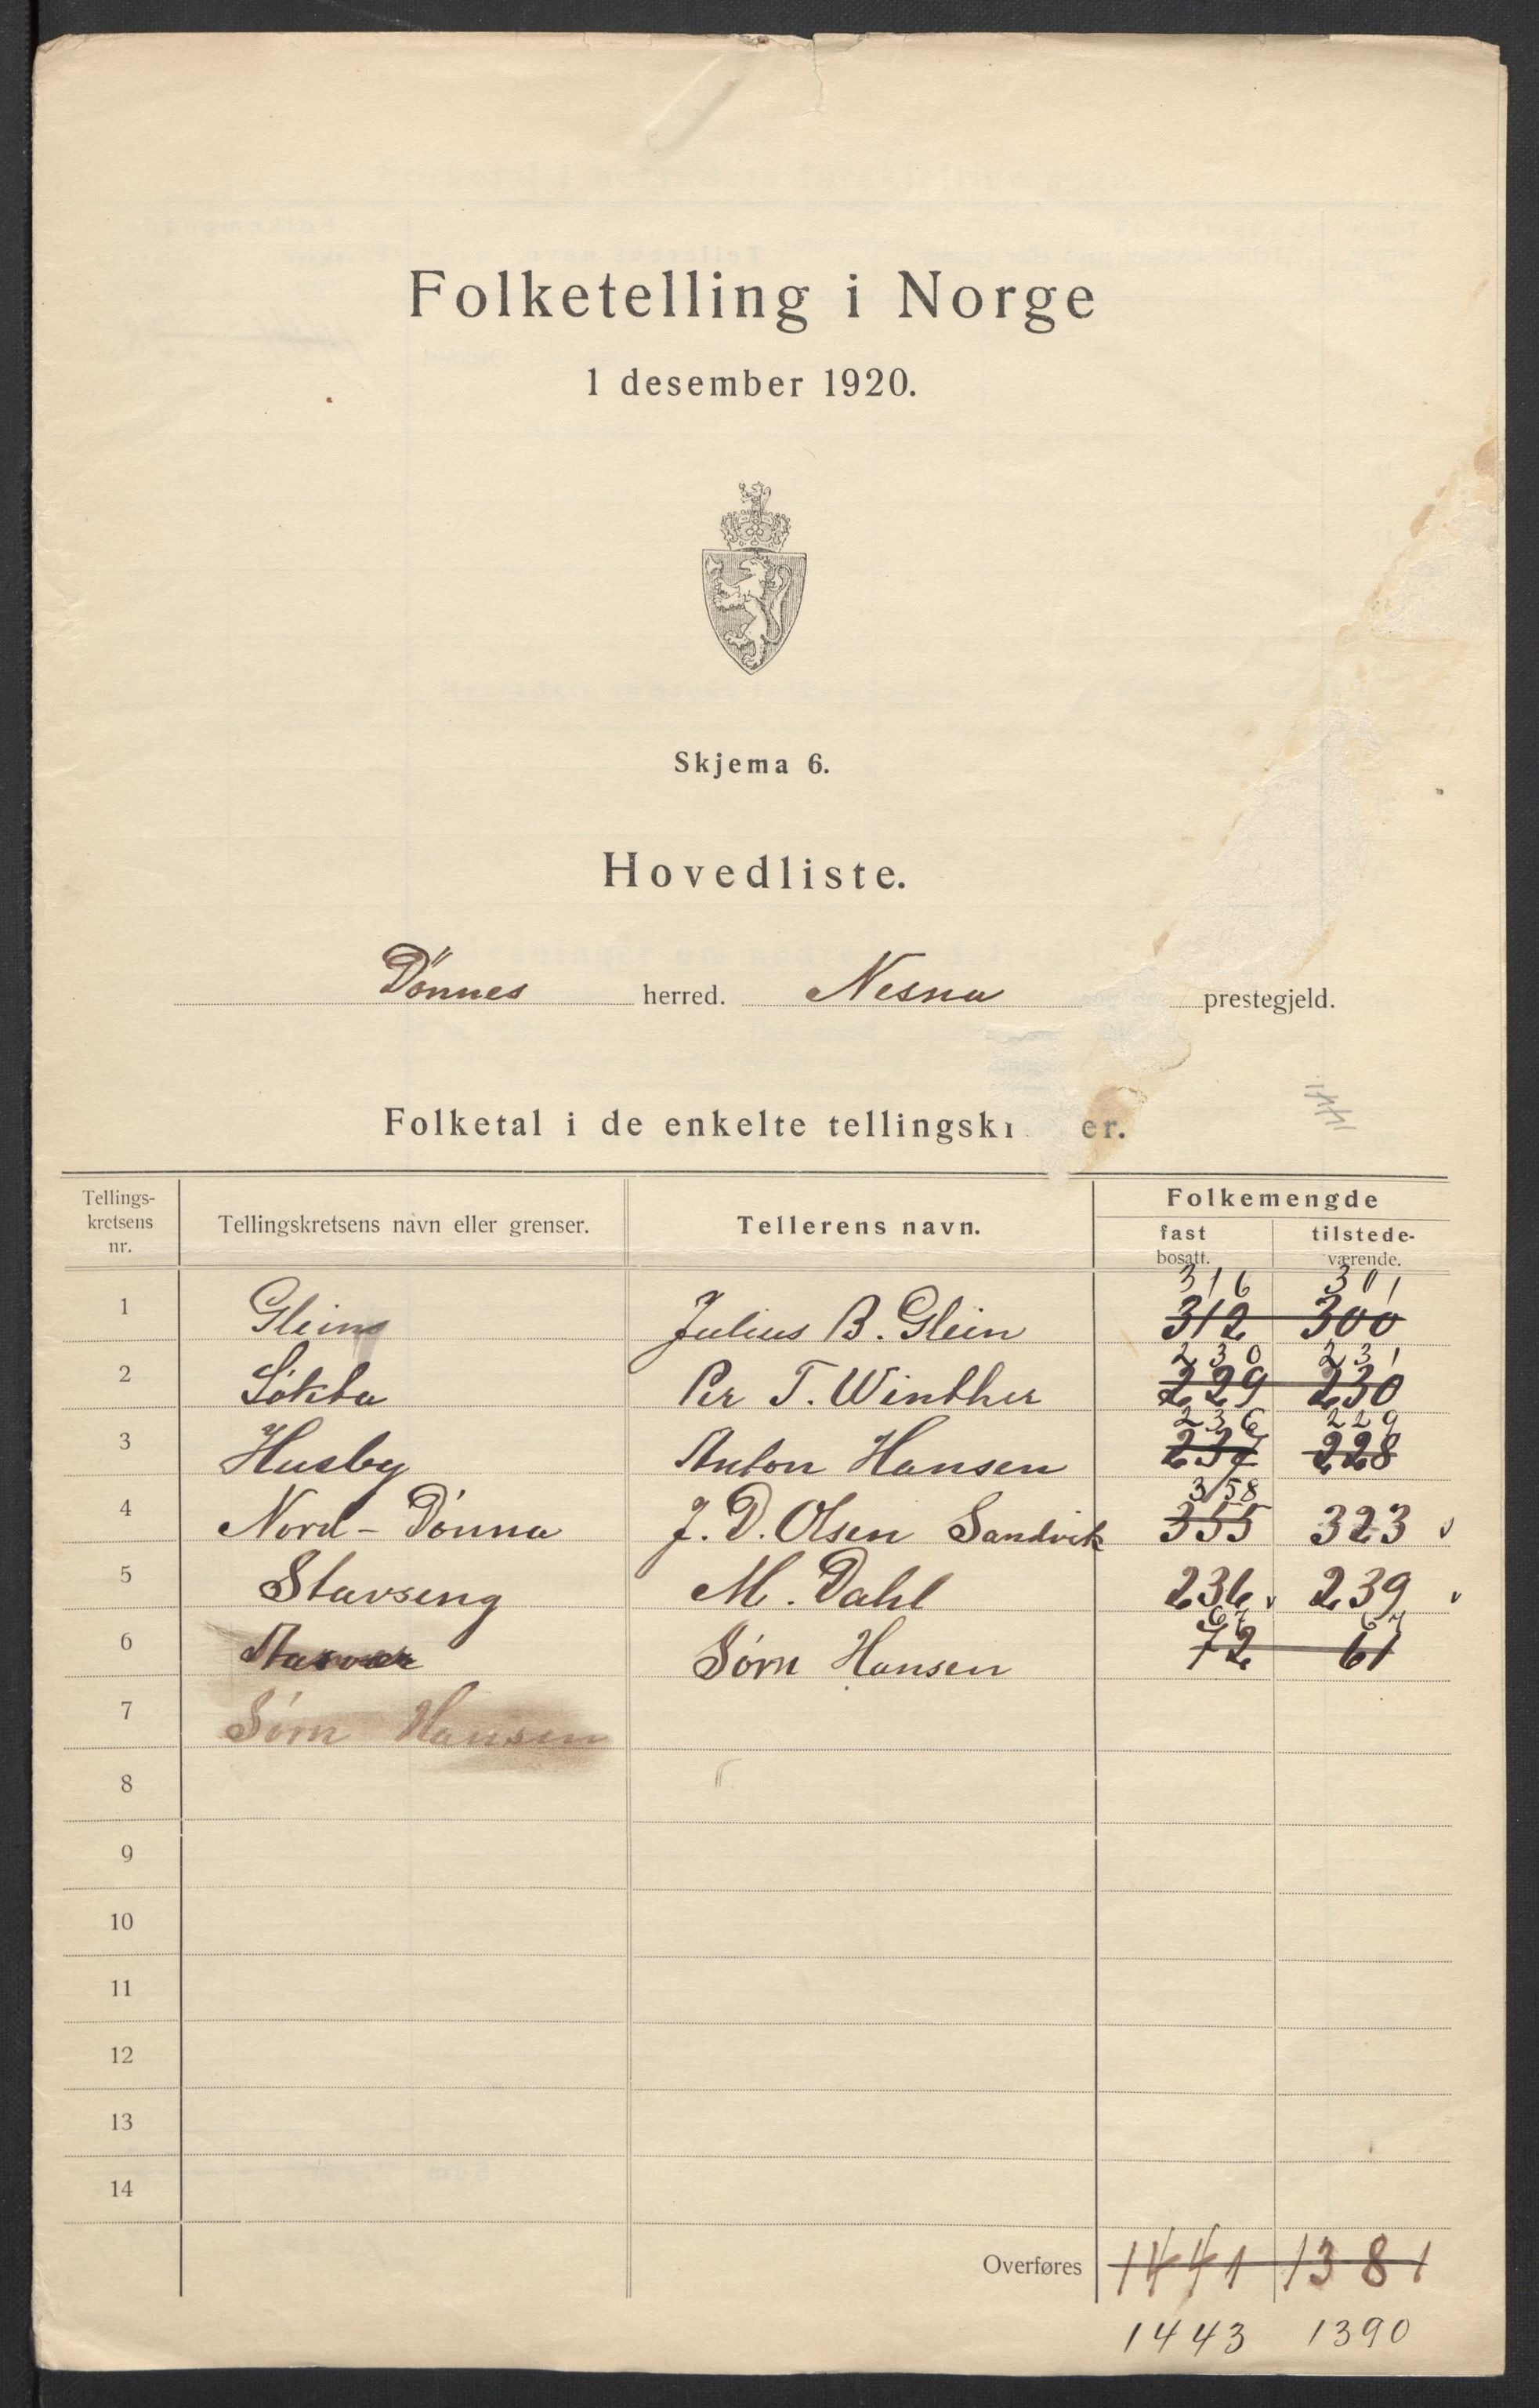 Folketelling i Norge
1 desember 1920.
Skjema 6.
Hovedliste.
Dönnes herred. Nesna prestegjeld.
Folketal i de enkelte tellingskr er.
Tellings-
kretsens
nr.
Tellingskretsens navn eller grenser.
Tellerens navn.
Folkemengde
fast
bosatt.
tilstede-
værende.
316 301
1 Glein Julius B. Glein 312 300
230 231
2 Løkta Per T. Winther 229 230
236 229
3 Husby Anton Hansen 237 228
358
4 Nord-Dönna J. D. Olsen Sandvik 355 323
5 Stavseng M. Dahl 236 239
67 67
6 Aasvær Sörn Hansen 72 61
7 Sörn Hansen
8
9
10
11
12
13
14
Overføres 1441 1381
1443 1390